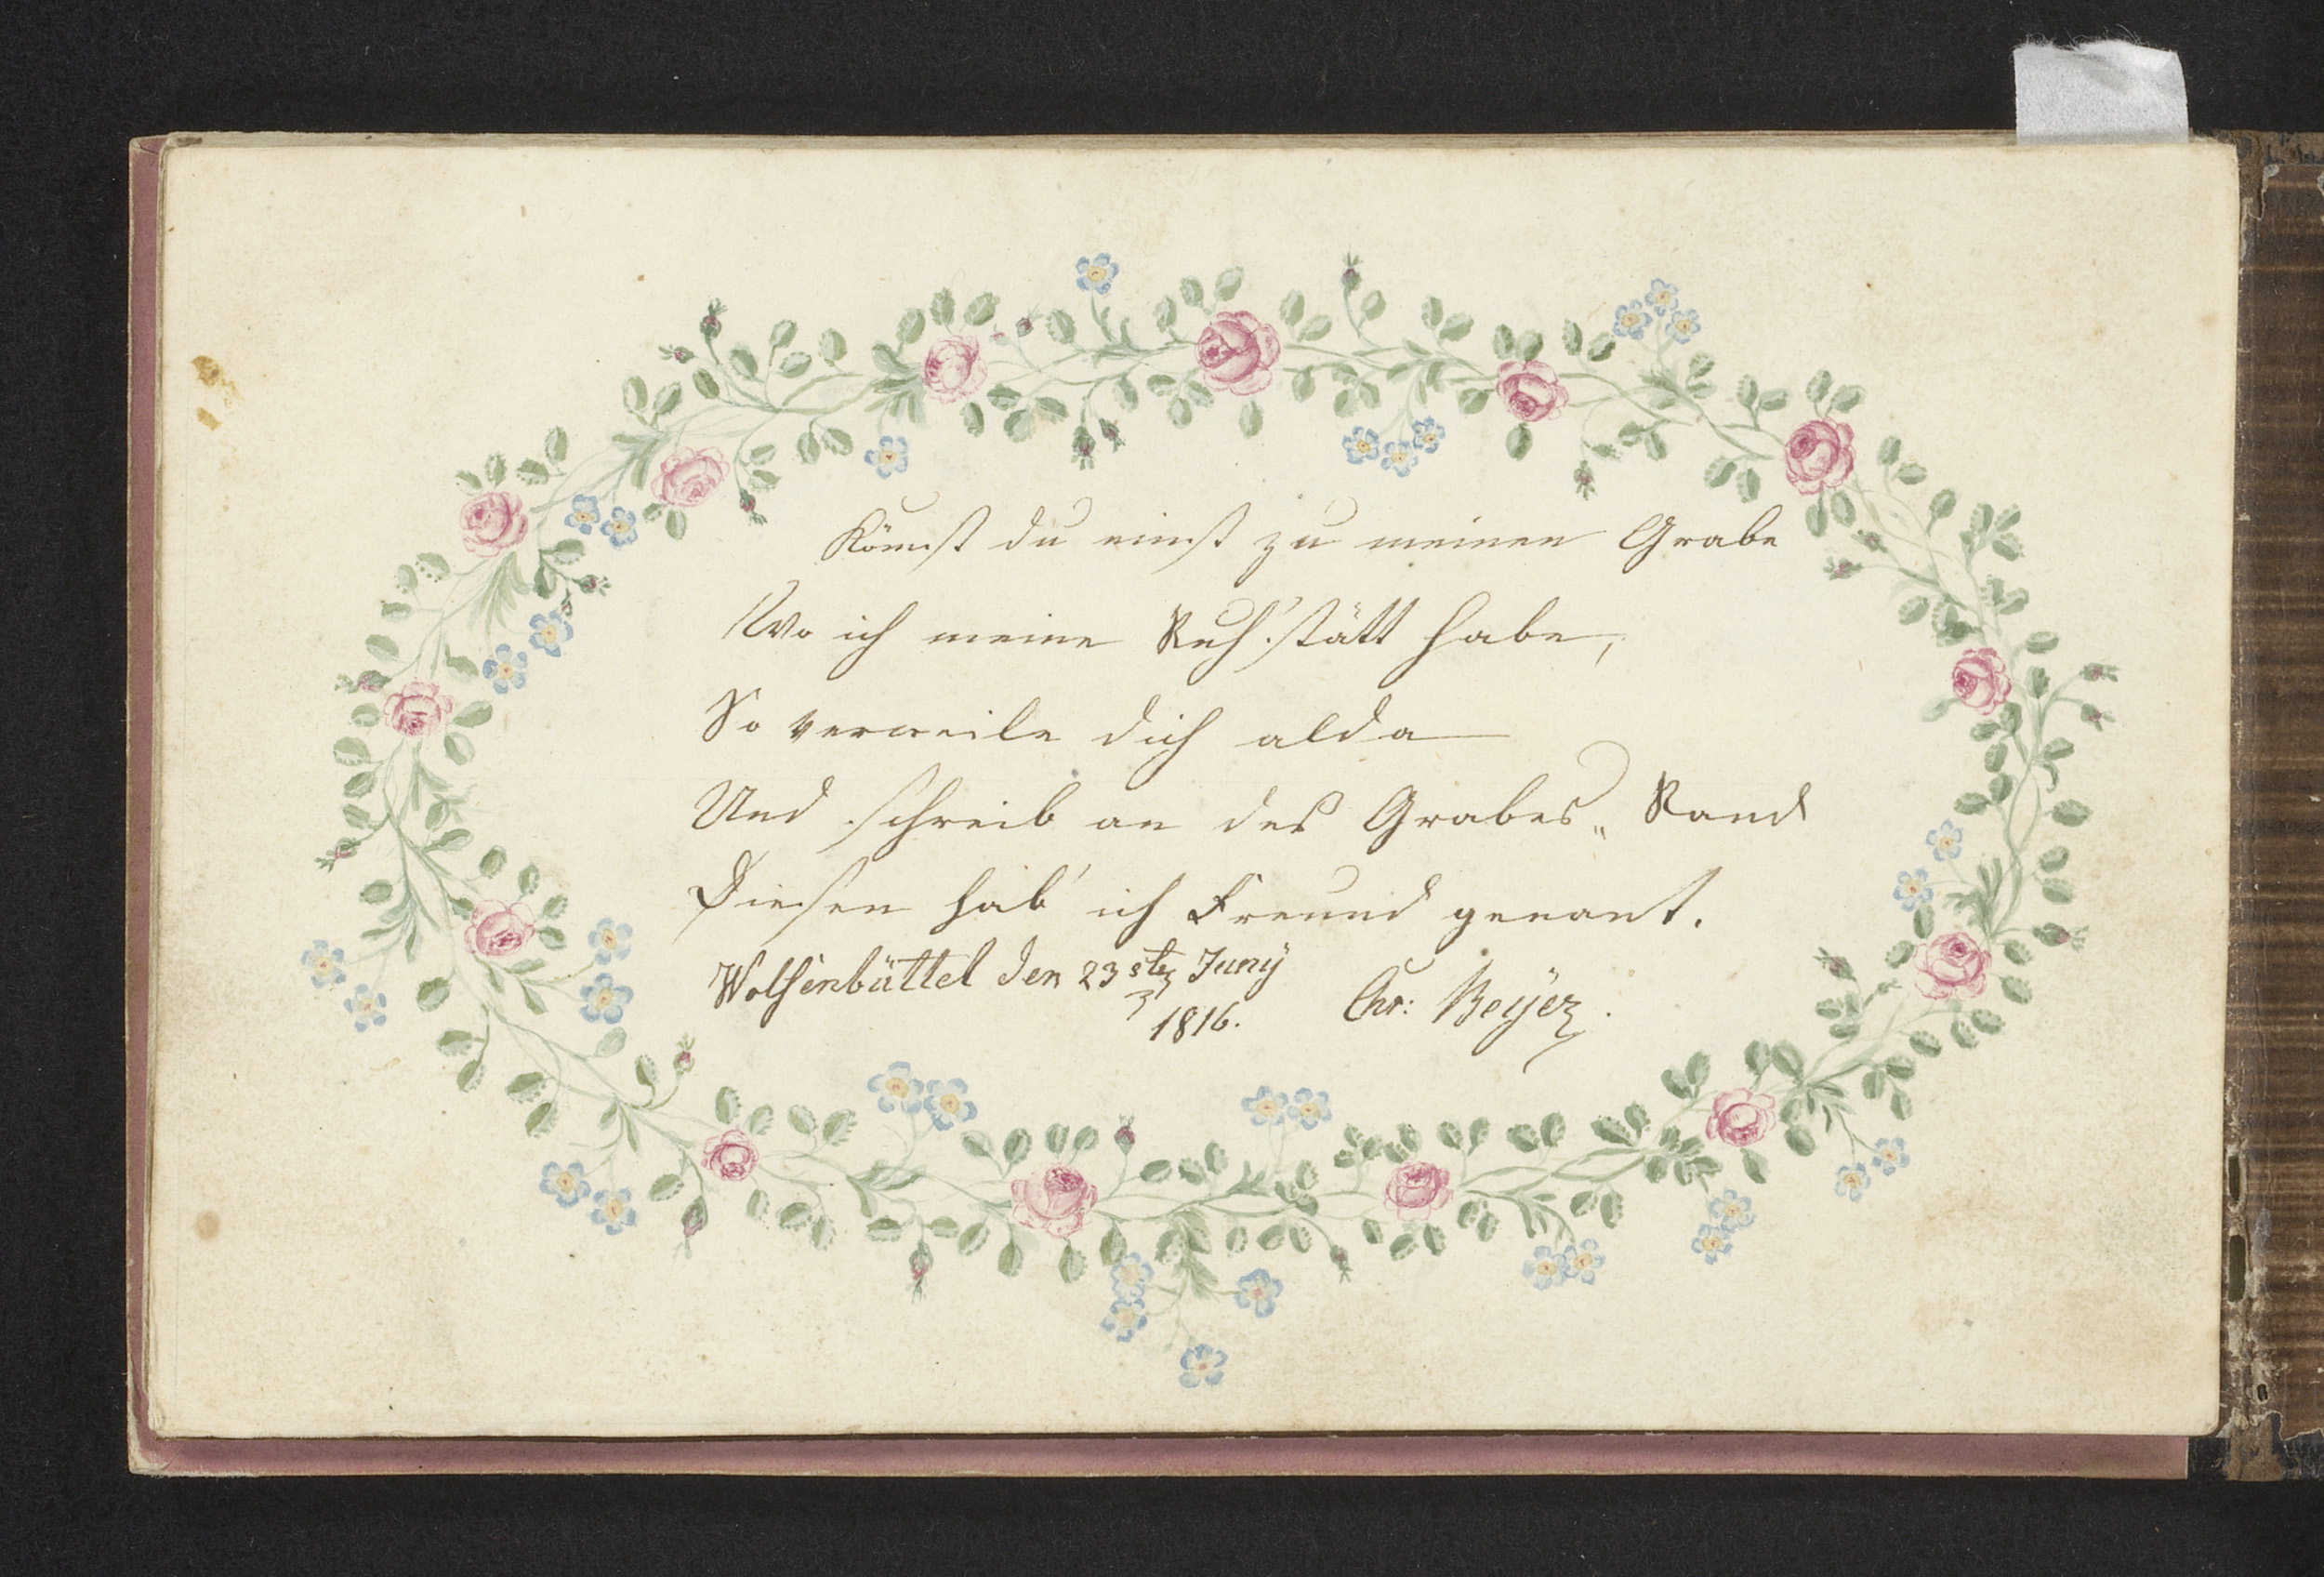 Kömst du einst zu meinen Grabe
Wo ich meine Ruh'stätt habe,
So verweile dich alda
Und schreib an des Grabes„ Rand
Diesen hab' ich Freund genant.
Wolfenbüttel den 23sten Juny
1816.
Chr: Beyer.